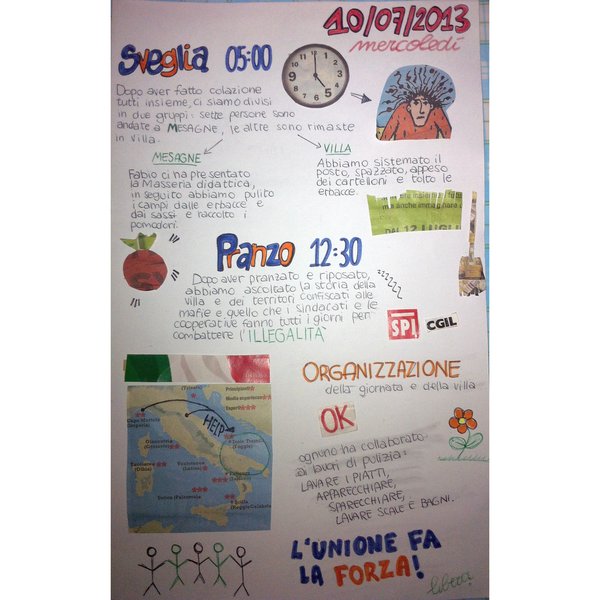 10/07/2013
mercoledì
Sveglia 05:00
Dopo aver fatto colazione
tutti insieme, ci siamo divisi
in due gruppi: sette persone sono
andate a MESAGNE, le altre sono rimaste
in villa.
MESAGNE
Fabio ci ha presentato
la Masseria didattica,
in seguito abbiamo pulito
i campi dalle erbacce e
dai sassi e raccolto i
pomodori.
VILLA
Abbiamo sistemato il
posto, spazzato, appeso
dei cartelloni e tolto le
erbacce.
ma anche immaginare
DAL 12 LUGLI
Pranzo 12:30
Dopo aver pranzato e riposato,
abbiamo ascoltato la storia della
villa e dei territori confiscati alle
mafie e quello che i sindacati e le
cooperative fanno tutti i giorni per
combattere l'ILLEGALITÀ
zzzzzz
SPI CGIL
ORGANIZZAZIONE
della giornata e della villa
OK
ognuno ha collaborato
ai lavori di pulizia:
LAVARE I PIATTI,
APPARECCHIARE,
SPARECCHIARE,
LAVARE SCALE E BAGNI.
Principianti
Media esperienza
Esperti
HELP
Capo Mortola
(Imperia)
(Grosseto)
(Olbia)
(Latina)
(Foggia)
Ustica (Palermo)
Scilla
(Reggio Calabria)
L'UNIONE FA
LA FORZA!